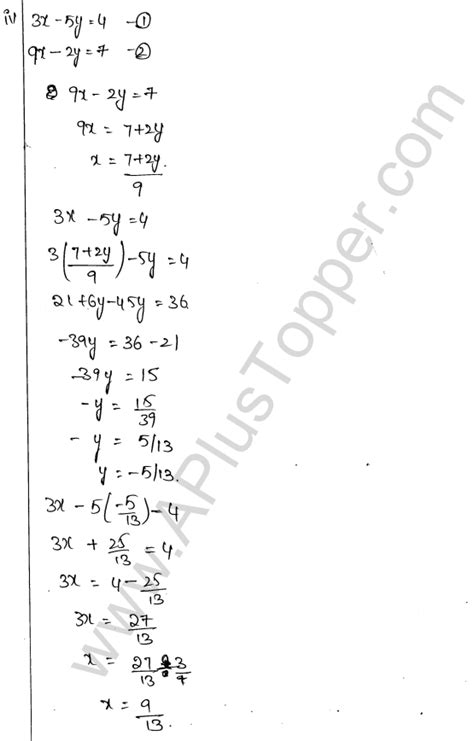 iv) 3x - 5y = 4 - ①
9x - 2y = 7 - ②
9x - 2y = 7
9x = 7+2y
x = 7+2y.
9
3x - 5y = 4
3(7+2y/9) - 5y = 4
21+6y-45y = 36
-39y = 36 - 21
-39y = 15
-y = 15/39
- y = 5/13
y = -5/13.
3x - 5(-5/13) - 4
3x + 25/13 = 4
3x = 4 - 25/13
3x = 27/13
x = 27/13 3/7
x = 9/13.
www.APlusTopper.com